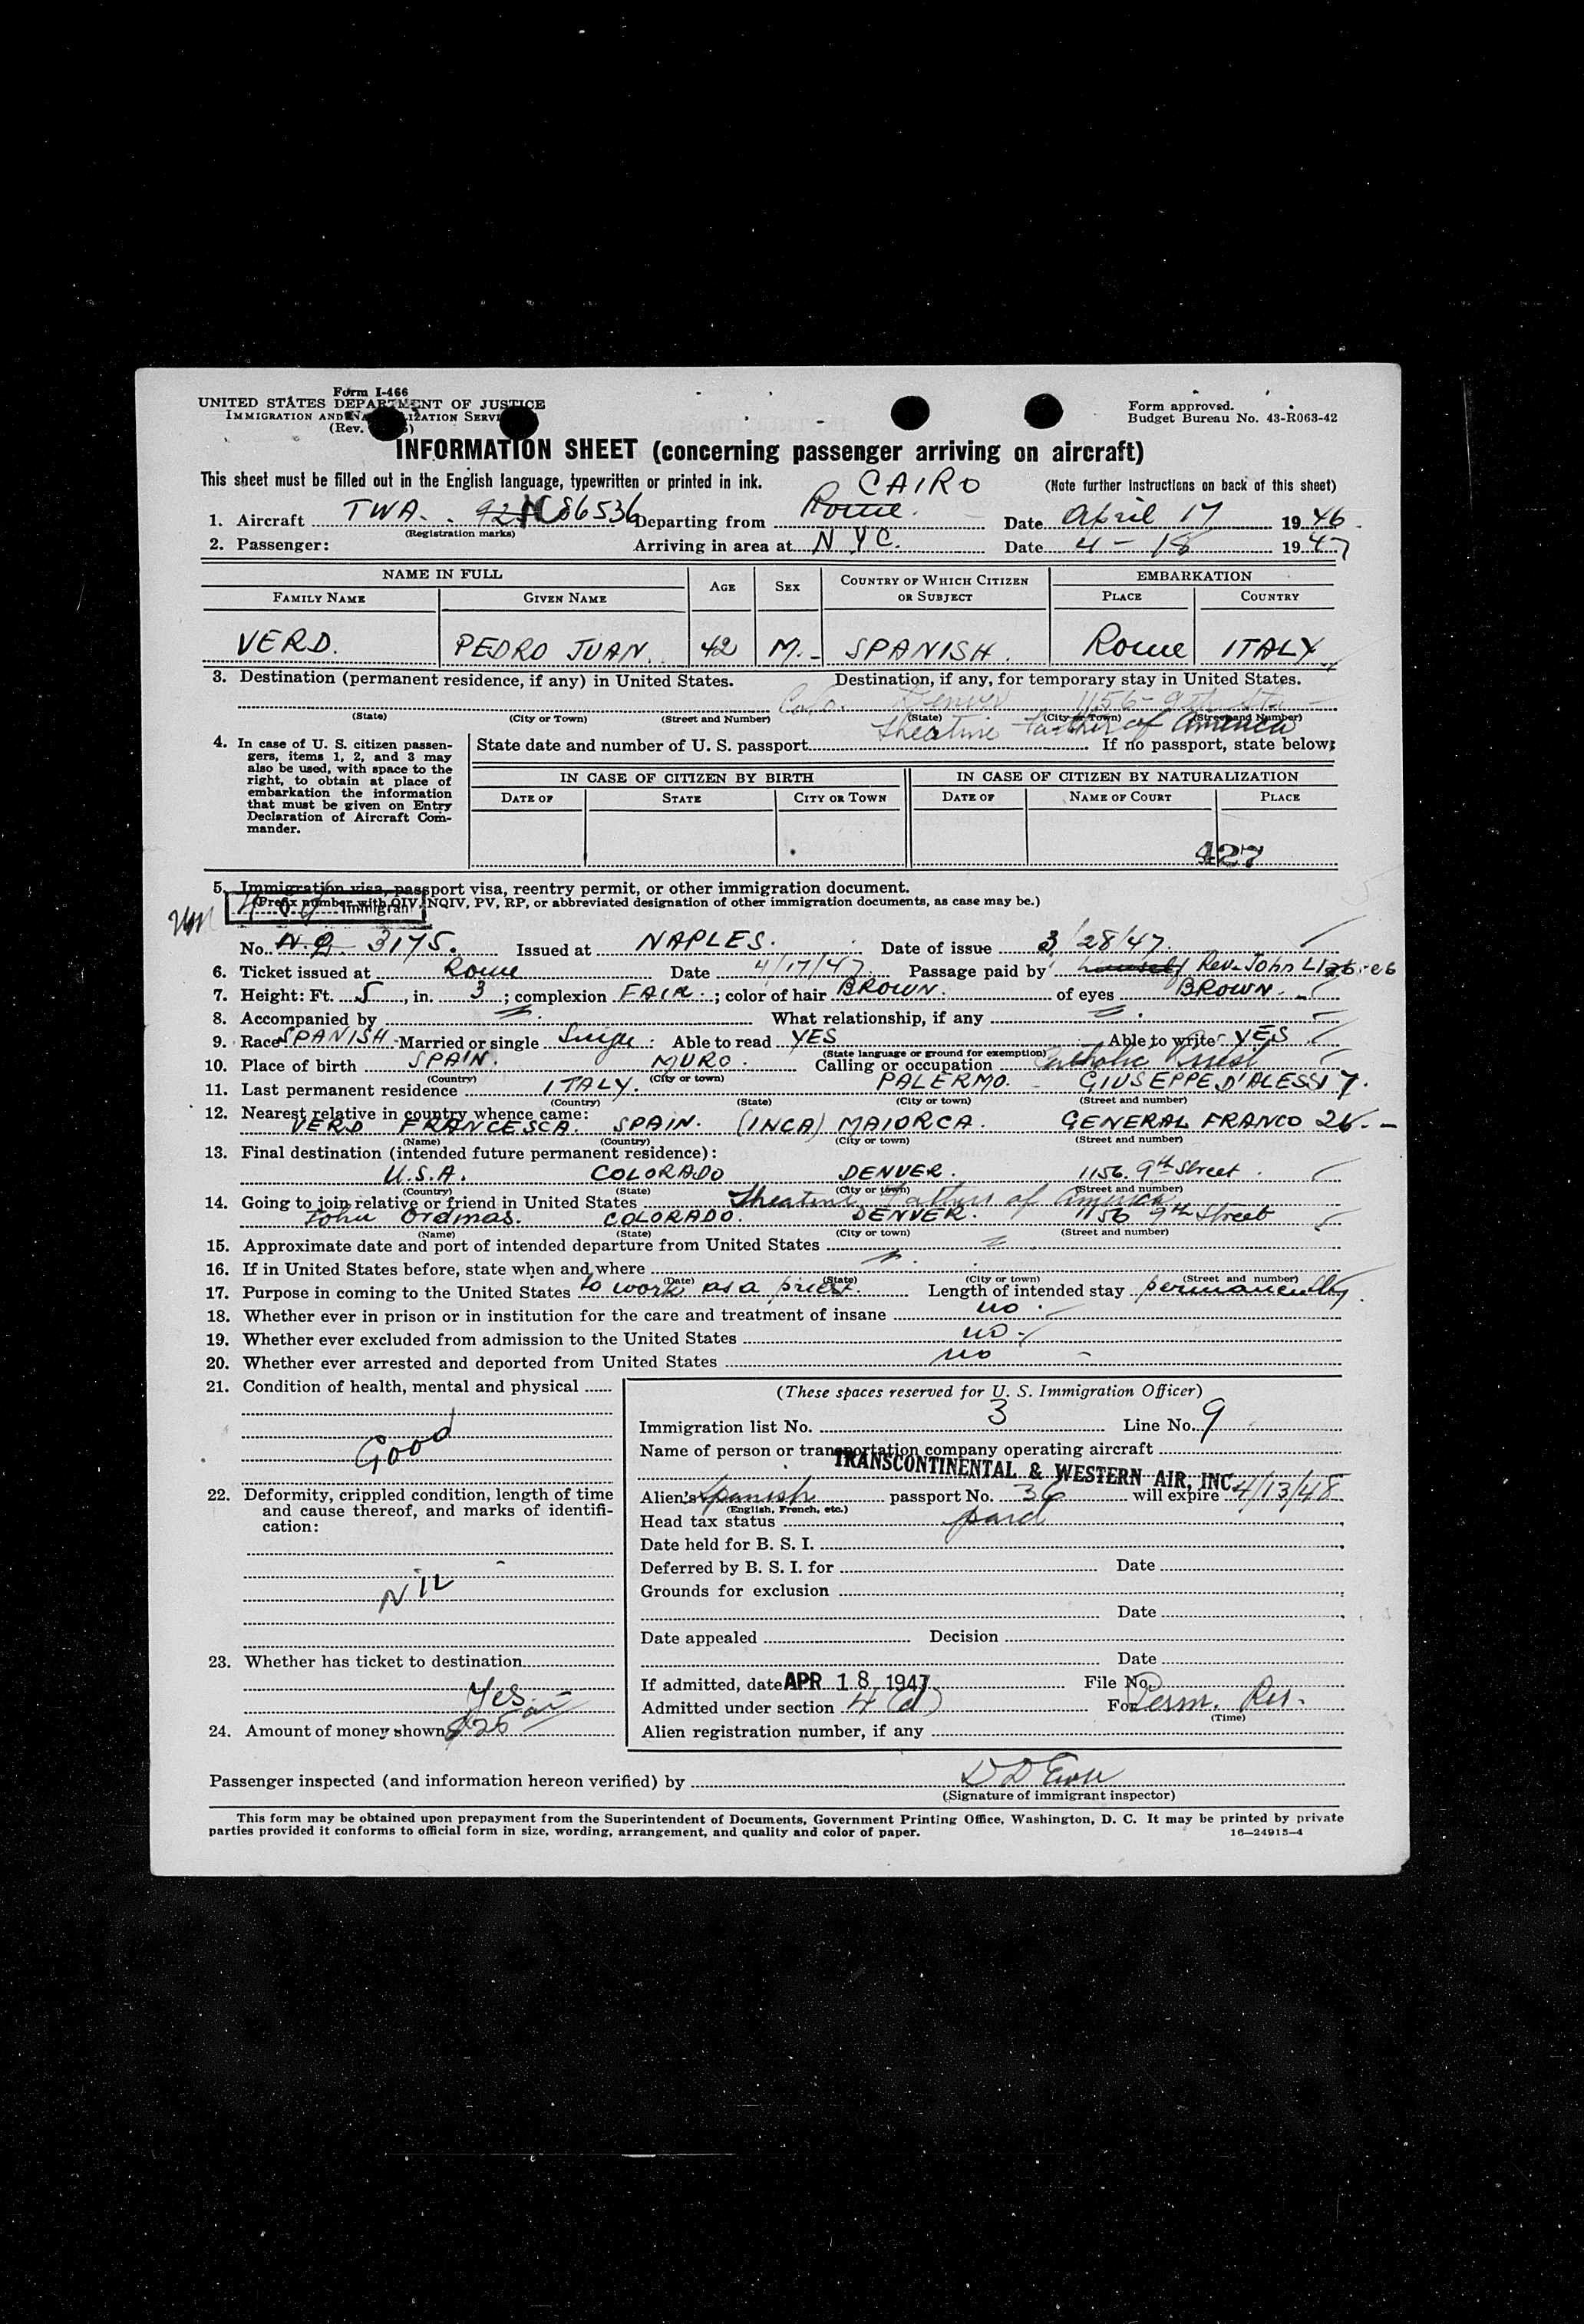 Form I-466
UNITED STATES DEPARTMENT OF JUSTICE
IMMIGRATION AND NATURALIZATION SERVICE
(Rev.
Form approved.
Budget Bureau No. 43-R063-42
INFORMATION SHEET (concerning passenger arriving on aircraft)
This sheet must be filled out in the English language, typewritten or printed in ink. (Note further instructions on back of this sheet)
CAIRO
1. Aircraft TWA. 92 NC86536 Departing from Rome. Date April 17 1946.
(Registration marks)
2. Passenger: Arriving in area at NYC. Date 4-18 1947
NAME IN FULL AGE SEX COUNTRY OF WHICH CITIZEN OR SUBJECT EMBARKATION
FAMILY NAME GIVEN NAME PLACE COUNTRY
VERD. PEDRO JUAN. 42 M. SPANISH. Rome ITALY
3. Destination (permanent residence, if any) in United States. Destination, if any, for temporary stay in United States.
Colo. Denver 1156-9th St.
(State) (City or Town) (Street and Number) (State) (City or Town) (Street and Number)
Theatine Fathers of America
4. In case of U. S. citizen passengers, items 1, 2, and 3 may also be used, with space to the right, to obtain at place of embarkation the information that must be given on Entry Declaration of Aircraft Commander.
State date and number of U. S. passport If no passport, state below:
IN CASE OF CITIZEN BY BIRTH IN CASE OF CITIZEN BY NATURALIZATION
DATE OF STATE CITY OR TOWN DATE OF NAME OF COURT PLACE
427
5. Immigration visa, passport visa, reentry permit, or other immigration document.
(Prefix number with QIV, NQIV, PV, RP, or abbreviated designation of other immigration documents, as case may be.)
No. N.Q. 3175. Issued at NAPLES. Date of issue 3/28/47.
6. Ticket issued at Rome Date 4/17/47 Passage paid by himself Rev. John
7. Height: Ft. 5, in. 3; complexion FAIR.; color of hair BROWN. of eyes BROWN.
8. Accompanied by What relationship, if any
9. Race SPANISH Married or single Single Able to read YES Able to write YES
(State language or ground for exemption)
10. Place of birth SPAIN. MURO. Calling or occupation Catholic Priest
(Country) (City or town)
11. Last permanent residence ITALY. PALERMO. GIUSEPPE D'ALESSI 7.
(Country) (State) (City or town) (Street and number)
12. Nearest relative in country whence came:
VERD FRANCESCA. SPAIN. (INCA) MAIORCA. GENERAL FRANCO 26.
(Name) (Country) (City or town) (Street and number)
13. Final destination (intended future permanent residence):
U.S.A. COLORADO DENVER. 1156. 9th Street.
(Country) (State) (City or town) (Street and number)
14. Going to join relative or friend in United States Theatine Fathers of America
John Ordinas. COLORADO. DENVER. 1156 9th Street
(Name) (State) (City or town) (Street and number)
15. Approximate date and port of intended departure from United States
16. If in United States before, state when and where
(Date) (State) (City or town) (Street and number)
17. Purpose in coming to the United States to work as a priest. Length of intended stay permanently.
18. Whether ever in prison or in institution for the care and treatment of insane no.
19. Whether ever excluded from admission to the United States no
20. Whether ever arrested and deported from United States no
21. Condition of health, mental and physical
Good
22. Deformity, crippled condition, length of time and cause thereof, and marks of identification:
NIL
23. Whether has ticket to destination
Yes
24. Amount of money shown $25
(These spaces reserved for U. S. Immigration Officer)
Immigration list No. 3 Line No. 9
Name of person or transportation company operating aircraft
TRANSCONTINENTAL & WESTERN AIR, INC.
Alien's Spanish passport No. 36 will expire 4/13/48
(English, French, etc.)
Head tax status paid
Date held for B. S. I.
Deferred by B. S. I. for Date
Grounds for exclusion
Date
Date appealed Decision
Date
If admitted, date APR 18 1947 File No.
Admitted under section 4(d) For Perm. Res.
(Time)
Alien registration number, if any
Passenger inspected (and information hereon verified) by
(Signature of immigrant inspector)
This form may be obtained upon prepayment from the Superintendent of Documents, Government Printing Office, Washington, D. C. It may be printed by private
parties provided it conforms to official form in size, wording, arrangement, and quality and color of paper. 16—24915-4